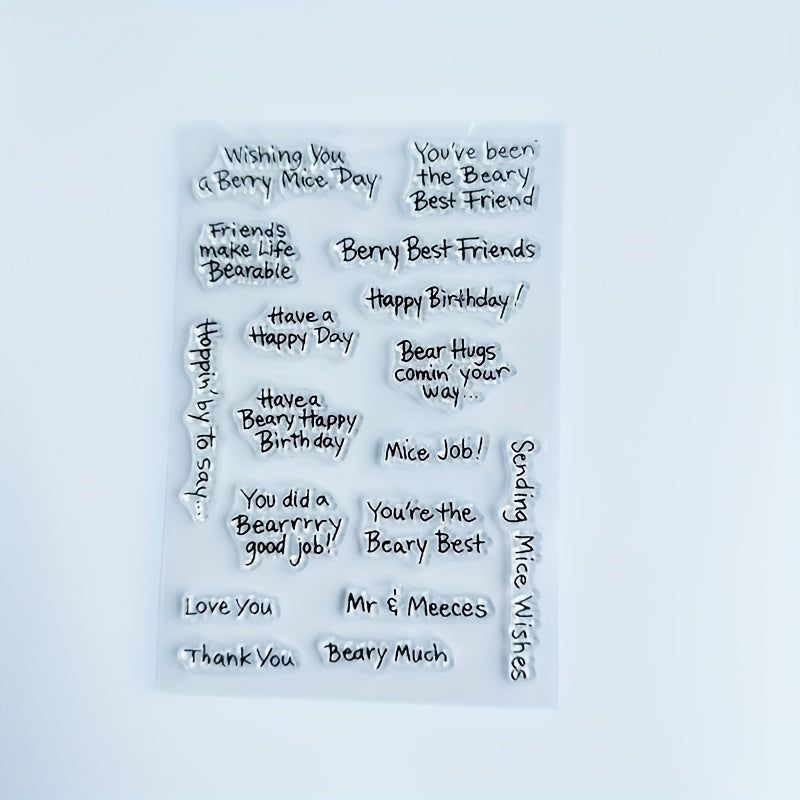 Wishing You
a Berry Mice Day
You've been
the Beary
Best Friend
Friends
make Life
Bearable
Berry Best Friends
Happy Birthday!
Have a
Happy Day
Hoppin' by to say...
Bear Hugs
comin' your
way...
Have a
Beary Happy
Birthday
Mice Job!
Sending Mice Wishes
You did a
Bearrrry
good job!
You're the
Beary Best
Love You
Mr & Meeces
Thank You
Beary Much